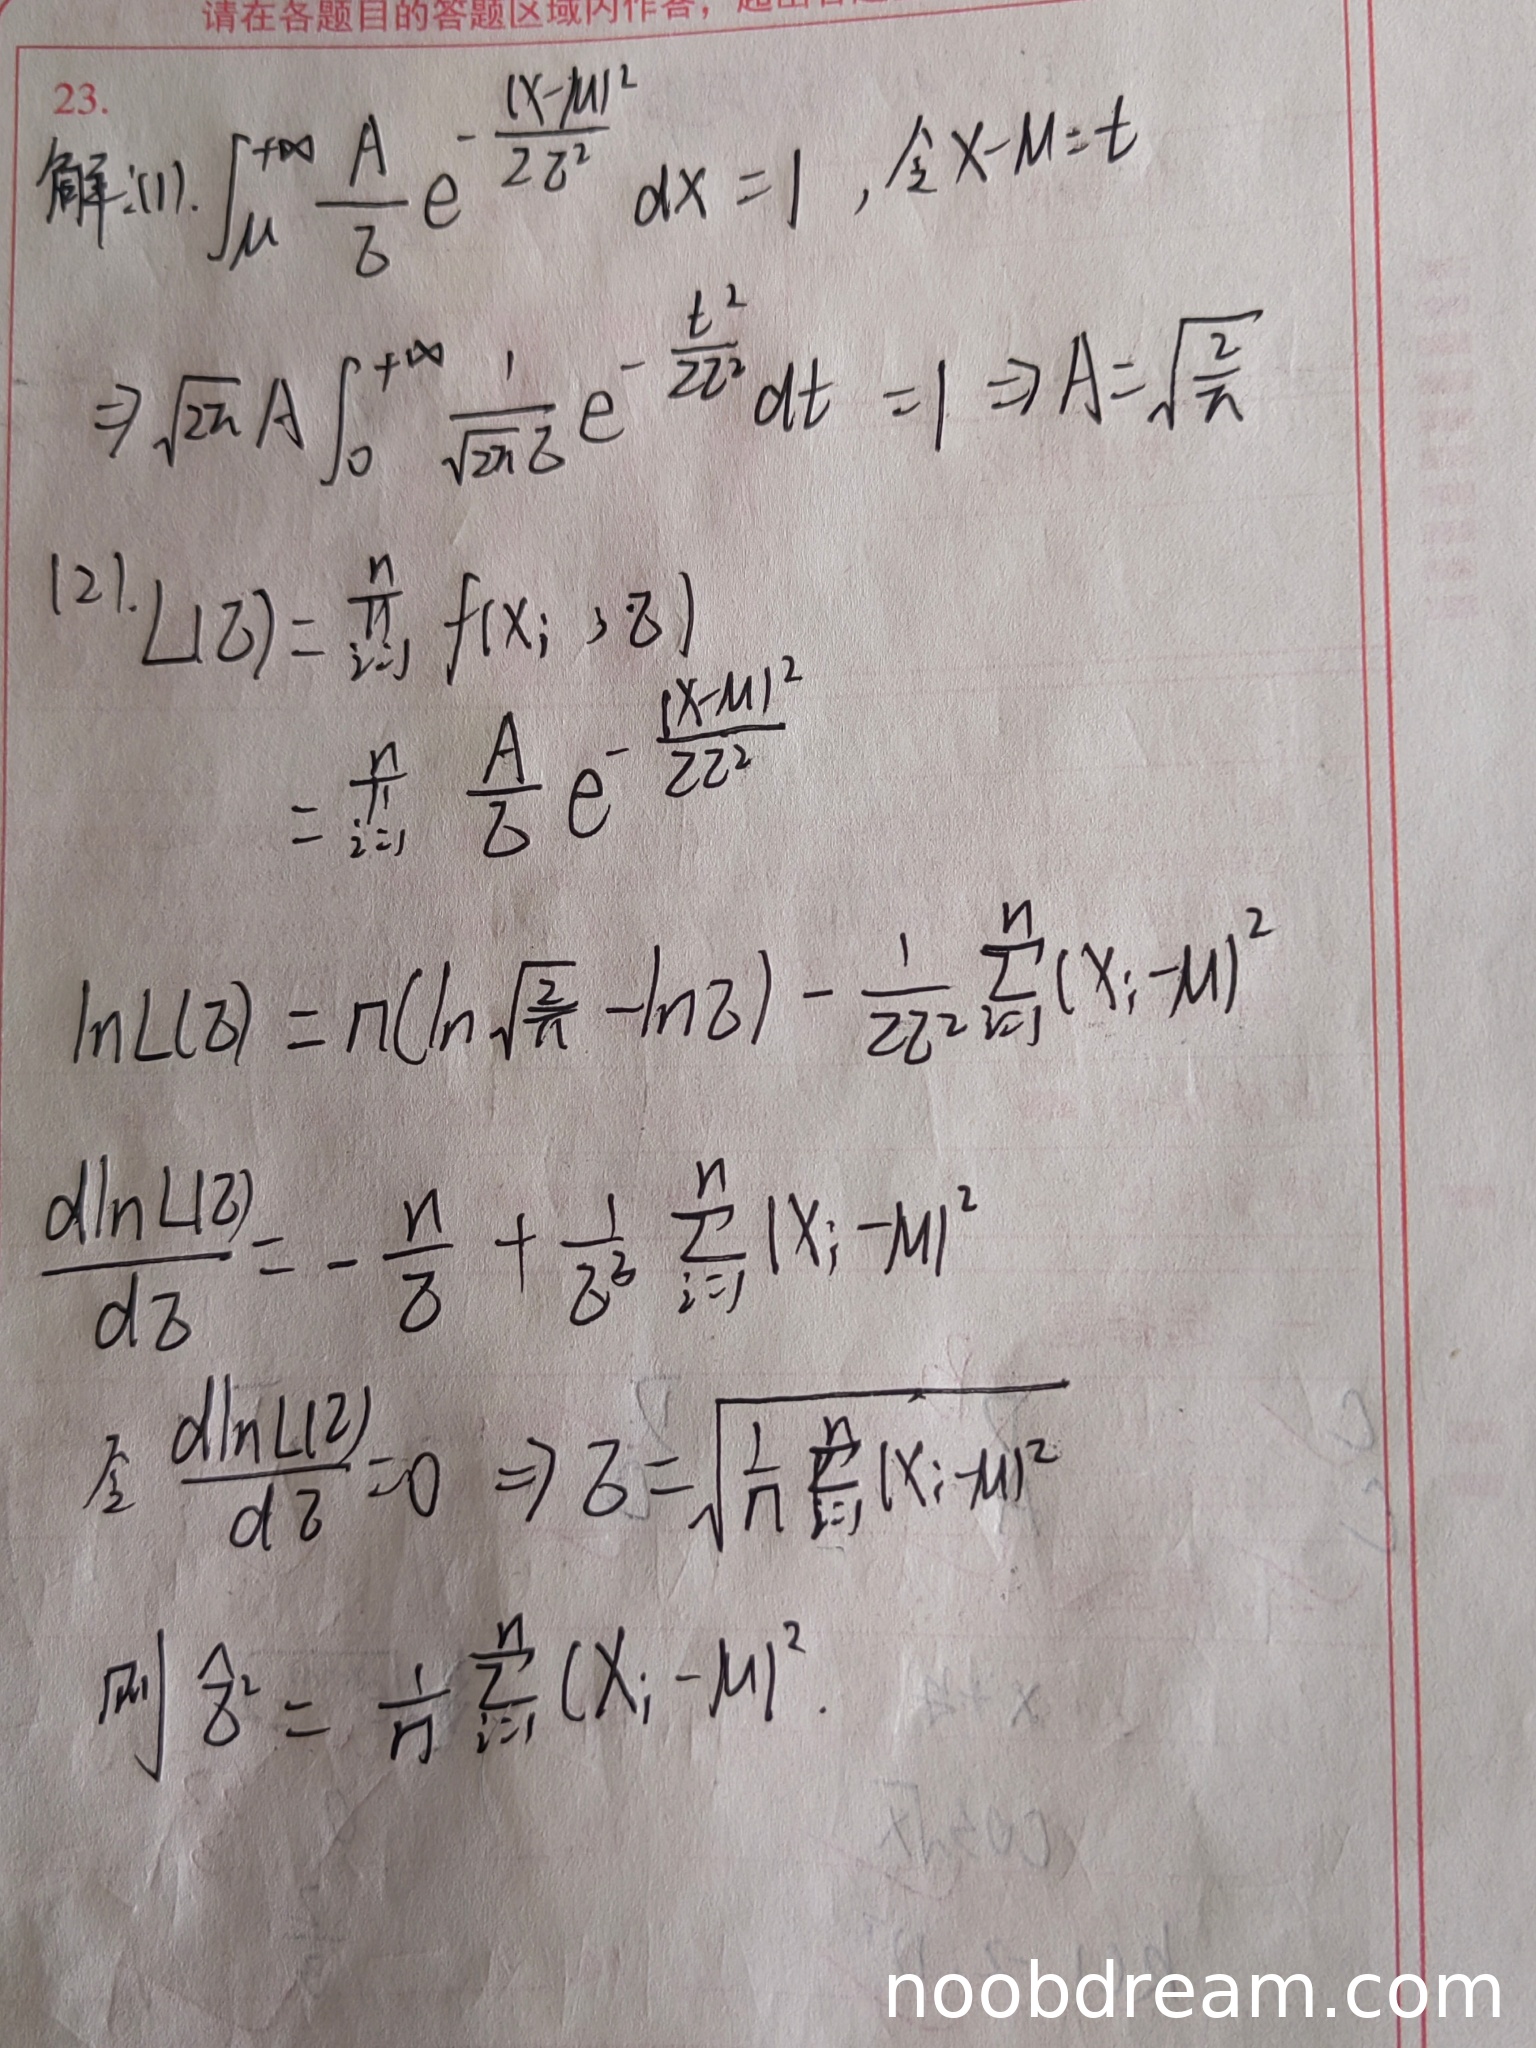 请在各题目的答题区域内作答，超出
23.
解:(1). ∫_μ^{+∞} A/σ e^{-(x-μ)²/2σ²} dx = 1 , 令x-μ=t
⇒ √(2π) A ∫_0^{+∞} 1/(√(2π)σ) e^{-t²/2σ²} dt = 1 ⇒ A = √(2/π)
(2). L(σ) = ∏_{i=1}^{n} f(x_i , σ)
= ∏_{i=1}^{n} A/σ e^{-(x-μ)²/2σ²}
lnL(σ) = n(ln√(2/π) - lnσ) - 1/2σ² ∑_{i=1}^{n} (x_i-μ)²
dlnL(σ)/dσ = - n/σ + 1/σ³ ∑_{i=1}^{n} (x_i-μ)²
令 dlnL(σ)/dσ = 0 ⇒ σ = √(1/n ∑_{i=1}^{n} (x_i-μ)²)
则 σ̂² = 1/n ∑_{i=1}^{n} (X_i-μ)².
noobdream.com